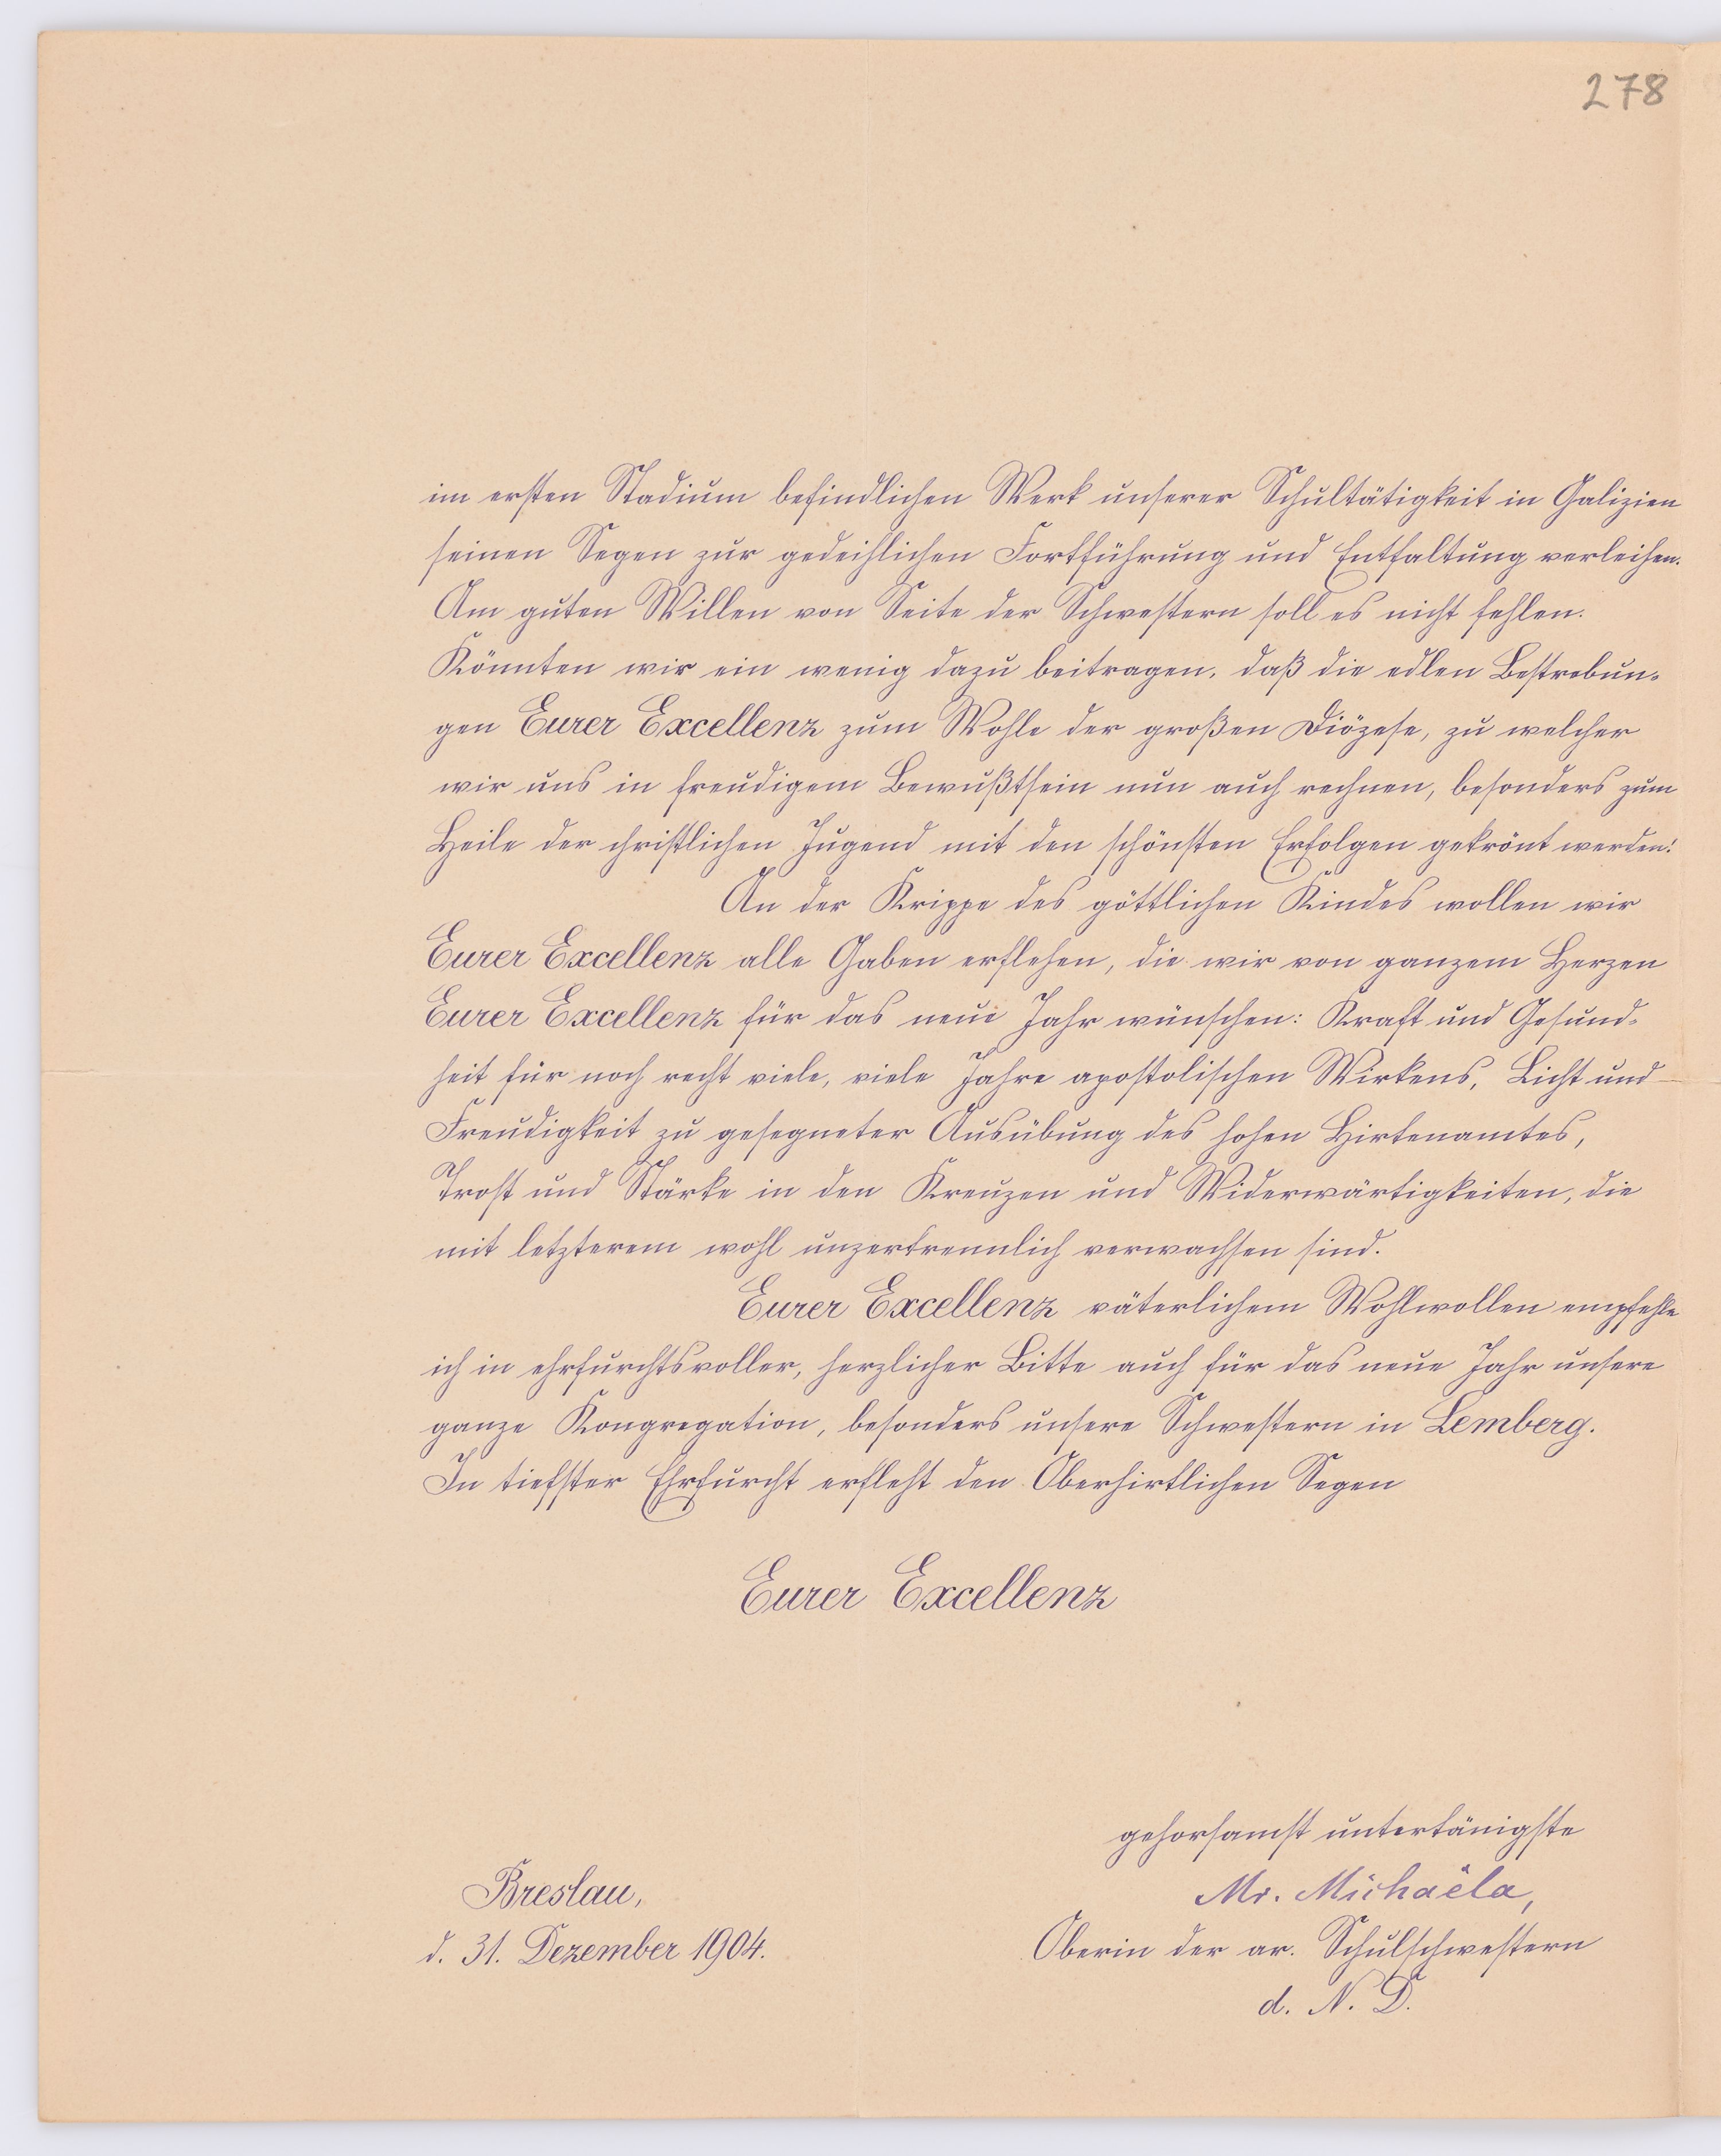 278
im ersten Stadium befindlichen Werk unserer Schultätigkeit in Galizien
seinen Segen zur gedeihlichen Fortführung und Entfaltung verleihen.
Am guten Willen von Seite der Schwestern soll es nicht fehlen.
Könnten wir ein wenig dazu beitragen, daß die edlen Bestrebun-
gen Eurer Excellenz zum Wohle der großen Diözese, zu welcher
wir uns in freudigem Bewußtsein nun auch rechnen, besonders zum
Heile der christlichen Jugend mit den schönsten Erfolgen gekrönt werden!
An der Krippe des göttlichen Kindes wollen wir
Eurer Excellenz alle Gaben erflehen, die wir von ganzem Herzen
Eurer Excellenz für das neue Jahr wünschen: Kraft und Gesund-
heit für noch recht viele, viele Jahre apostolischen Wirkens, Licht und
Freudigkeit zu gesegneter Ausübung des hohen Hirtenamtes,
Trost und Stärke in den Kreuzen und Widerwärtigkeiten, die
mit letzterem wohl unzertrennlich verwachsen sind.
Eurer Excellenz väterlichem Wohlwollen empfehle
ich in ehrfurchtsvoller, herzlicher Bitte auch für das neue Jahr unsere
ganze Kongregation, besonders unsere Schwestern in Lemberg.
In tiefster Ehrfurcht erfleht den Oberhirtlichen Segen
Eurer Excellenz
gehorsamst untertänigste
Breslau,
Mr. Michaëla,
d. 31. Dezember 1904.
Oberin der ar. Schulschwestern
d. N. D.